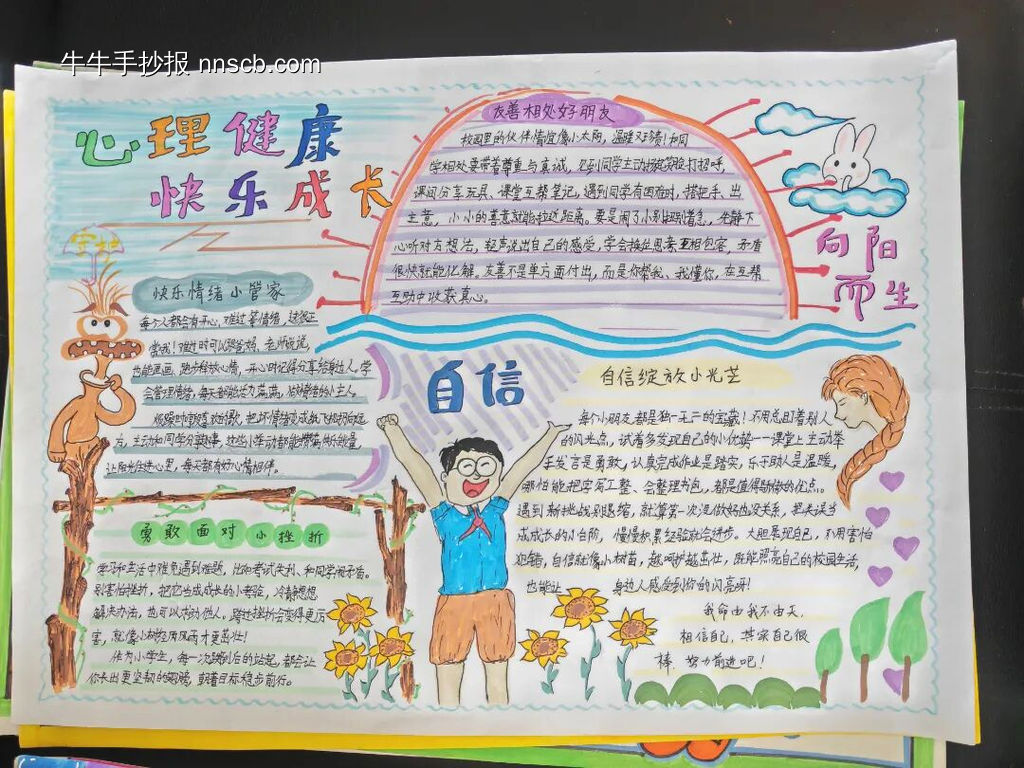 牛牛手抄报 nnscb.com
心理健康
快乐成长
友善相处好朋友
校园里的伙伴情谊像小太阳,温暖又珍贵!和同
学相处要带着尊重与真诚,见到同学主动挥挥笑脸打招呼,
课间分享玩具、课堂互帮笔记,遇到同学有困难时,搭把手、出
主意,小小的善意就能拉近距离。要是闹了小别扭别着急,先静下
心听对方想法,轻声说出自己的感受,学会换位思考互相包容,矛盾
很快就能化解。友善不是单方面付出,而是你帮我、我懂你,在互帮
互助中收获真心。
向阳
而生
快乐情绪小管家
每个人都会有开心、难过等情绪,这很正
常哦!难过时可以跟爸妈、老师说说,
也能画画、跑步释放心情,开心时记得分享给身边人。学
会管理情绪,每天都能活力满满,做情绪的小主人。
让阳光住进心里,每天都有好心情相伴。
自信
自信绽放小光芒
每个小朋友都是独一无二的宝藏!不用总盯着别人
的闪光点,试着多发现自己的小优势——课堂上主动举
手发言是勇敢,认真完成作业是踏实,乐于助人是温暖,
哪怕能把字写工整、会整理书包,都是值得骄傲的优点。
遇到新挑战别退缩,就算第一次没做好也没关系,把失误当
成成长的小台阶,慢慢积累经验就会进步。大胆展现自己,不用害怕
犯错,自信就像小树苗,越呵护越茁壮,既能照亮自己的校园生活,
也能让身边人感受到你的闪亮呀!
我命由我不由天,
相信自己,其实自己很
棒,努力前进吧!
勇敢面对小挫折
学习和生活中难免遇到难题,比如考试失利、和同学闹矛盾。
别害怕挫折,把它当成成长的小考验,冷静想想
解决办法,也可以求助他人。跨过挫折会变得更厉
害,就像小树经历风雨才更茁壮!
作为小学生,每一次跌倒后的站起,都会让
你长出更坚韧的翅膀,朝着目标稳步前行。